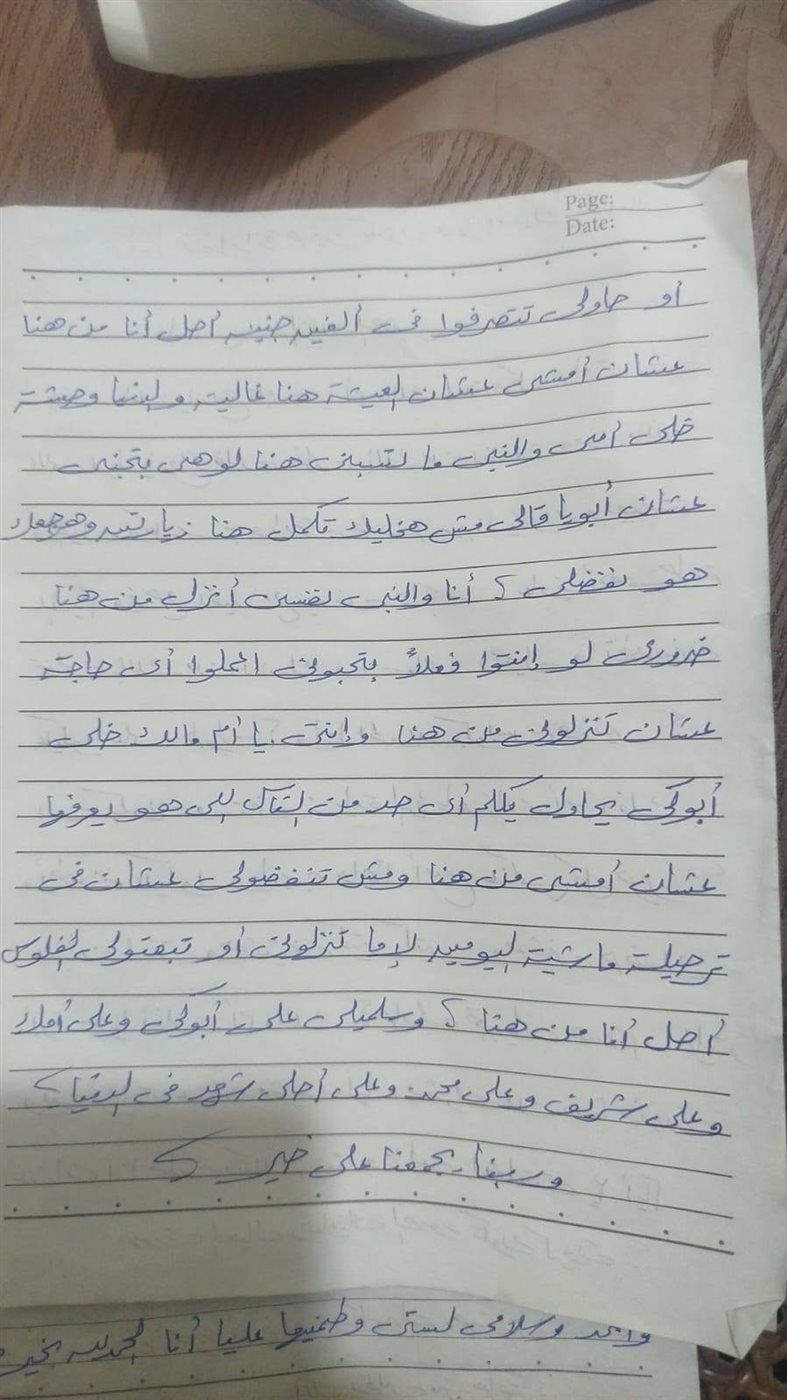 Page:
Date:
أو حاولى تتصرفوا فى ألفين جنيه أحل أنا من هنا
عشان أمشى عشان العيشة هنا غالية والدنيا وحشة
خلى أمى والنبى ما تسبنى هنا لو هى بتحبنى
عشان أبويا قالى مش هخليك تكمل هنا زيارتين وهرجعك
هو نفضلى ؟ أنا والنبى نفسى أنزل من هنا
ضرورى لو إنتوا فعلاً بتحبونى اعملوا أى حاجة
عشان تنزلونى من هنا وإنتى يا أم مالك خلى
أبوكى يحاول يكلم أى حد من الناس اللى هو يعرفها
عشان أمشى من هنا ومش تنفضولى عشان فى
ترحيلة ماشية اليومين لإما تنزلونى أو تبعتولى الفلوس
أحل أنا من هنا ؟ وسلميلى على أبوكى وعلى أملك
وعلى شريف وعلى محمد وعلى أحلى شهد فى الدنيا ؟
وربنا يجمعنا على خير ؟
وأحمد وسلامى لستى وطمنيها عليا أنا الحمد لله بخير